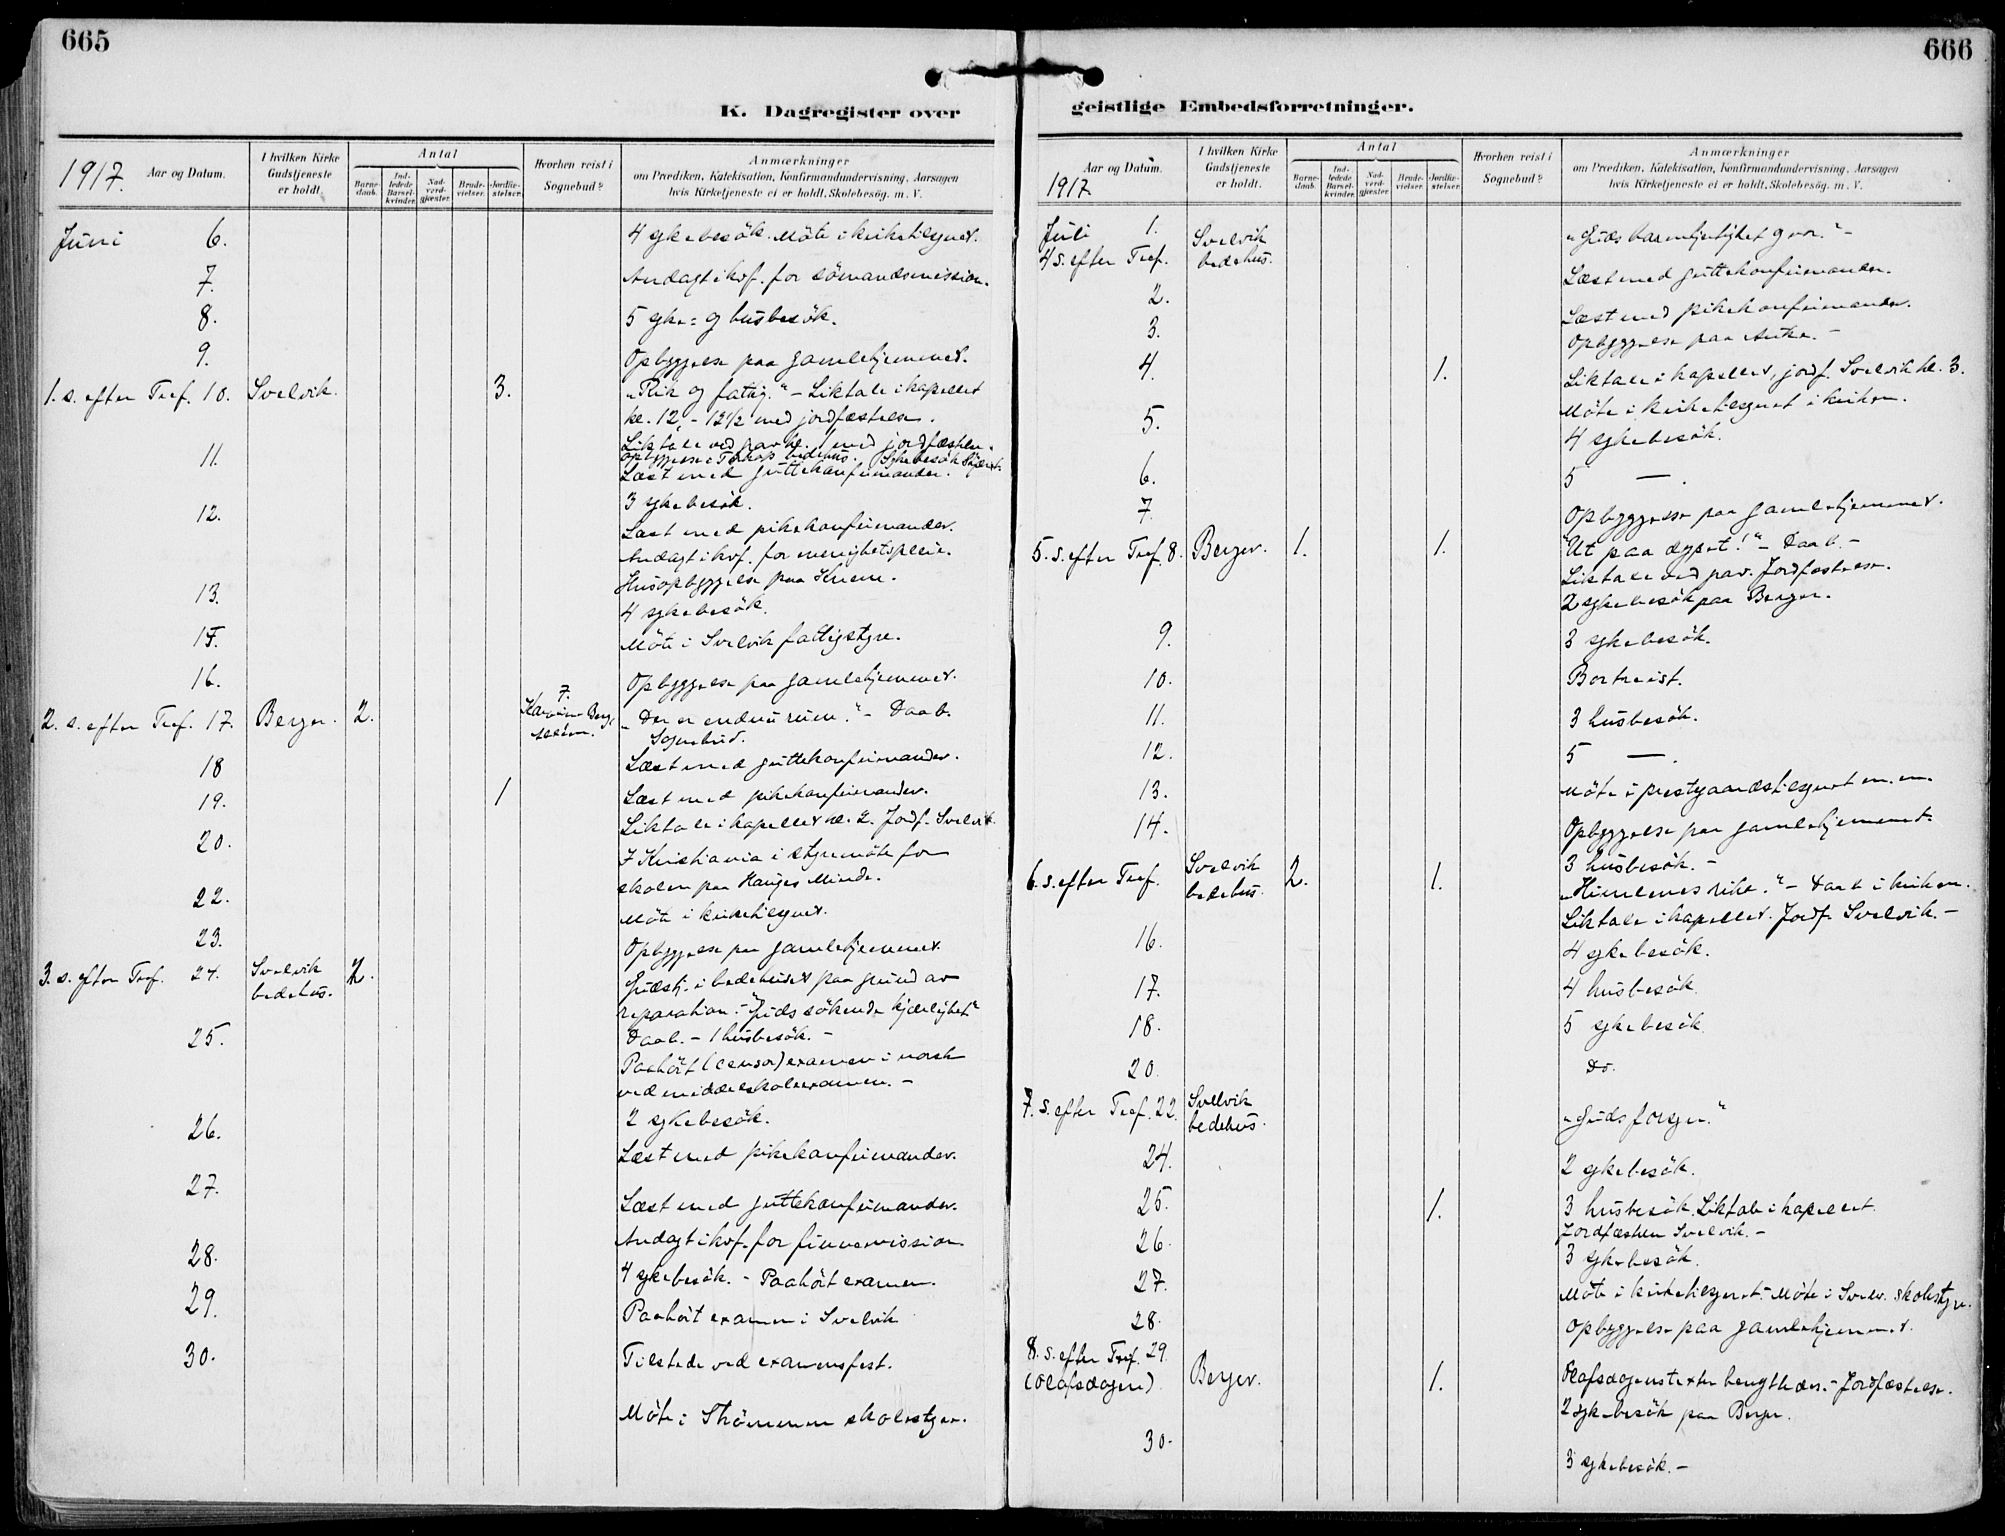 665
K. Dagregister over
1917. Aar og Datum.
I hvilken Kirke Gudstjeneste er holdt.
Antal
Barne-daab.
Ind-ledede Barsel-kvinder.
Nad-verd-gjæster.
Brude-vielser.
Jordfæ-stelser.
Hvorhen reist i Sognebud?
Anmærkninger
om Prædiken, Katekisation, Konfirmandundervisning, Aarsagen
hvis Kirketjeneste ei er holdt, Skolebesøg. m. V.
Juni 6. 4 sykebesök. Möte i kirketilsynet.
7. Andagt i kvf. for sömandsmission.
8. 5 syke= og husbesök.
9. Opbyggelse paa gamlehjemmet.
1. s. efter Tref. 10. Svelvik. 3. "Rik og fattig." - Liktale i kapellet
kl. 12, - 12 1/2 med jordfæstelse.
Liktale ved grav kl. 1 med jordfæstelse.
11. Opbyggelse i bedehus. Sykebesök
Læst med guttekonfirmander.
3 sykebesök.
12. Læst med pikekonfirmander.
Andagt i kvf. for menighetspleie.
Husopbyggelse paa
13. 4 sykebesök.
15. Möte i Svelvik fattigstyre.
16. Opbyggelse paa gamlehjemmet.
2. s. efter Tref. 17. Berger. 2. 7. Berg "Der er endnu rum." - Daab.
Sognebud.
18 Læst med guttekonfirmander.
19. 1 Læst med pikekonfirmander.
Liktale i kapellet kl. 2. Jordf. Svelvik
20. I Kristiania i styremöte for
skolen paa Hauges Minde.
22. Möte i kirketilsynet.
23. Opbyggelse paa gamlehjemmet
3. s. efter Tref. 24. Svelvik bedehus. 2. Gudstj. i bedehuset paa grund av
reparation. - "Guds sökende kjærlighet"
Daab. - 1 husbesök. -
25. Paahört (censor) examen i norsk
ved middelskoleexamen. -
2 sykebesök.
26. Læst med pikekonfirmander.
27. Læst med guttekonfirmander.
Andagt i kvf. for finnemission
28. 4 sykebesök. - Paahört examen.
29. Paahört examen i Svelvik
30. Tilstede ved examensfest.
Möte i Strömmen skolestyre.
666
geistlige Embedsforretninger.
Aar og Datum.
1917
I hvilken Kirke Gudstjeneste er holdt.
Antal
Barne-daab.
Ind-ledede Barsel-kvinder.
Nad-verd-gjæster.
Brude-vielser.
Jordfæ-stelser.
Hvorhen reist i Sognebud?
Anmærkninger
om Prædiken, Katekisation, Konfirmandundervisning, Aarsagen
hvis Kirketjeneste ei er holdt, Skolebesøg. m. V.
Juli 1.
4 s. efter Tref. Svelvik bedehus. "Guds barmhjertighet -
Læst med guttekonfirmander.
2. Læst med pikekonfirmander.
3. Opbyggelse paa
4. 1. Liktale i kapellet, jordf. Svelvik kl. 3.
Möte i kirketilsynet i kirken.
5. 4 sykebesök.
6. 5 — .
7. Opbyggelse paa gamlehjemmet.
5. s. efter Tref. 8. Berger. 1. 1. "Ut paa dypet!" - Daab. -
Liktale ved grav. Jordfæstelse.
2 sykebesök paa Berger.
9. 3 sykebesök.
10. Bortreist.
11. 3 husbesök.
12. 5 — .
13. Möte i prestgaardstilsynet m.m.
14. Opbyggelse paa gamlehjemmet.
3 husbesök. -
6. s. efter Tref. Svelvik bedehus. 2. 1. "Himlenes rike." - Daab i kirken.
Liktale i kapellet. Jordf. Svelvik. -
16. 4 sykebesök.
17. 4 husbesök
18. 5 sykebesök.
20. Do.
7. s. efter Tref. 22. Svelvik bedehus. "Guds forsyn."
24. 2 sykebesök.
25. 1. 3 husbesök. Liktale i kapellet.
Jordfæstelse Svelvik. -
26. 3 sykebesök.
27. Möte i kirketilsynet. - Möte i Svelv. skolestyre.
28. Opbyggelse paa gamlehjemmet.
8. s. efter Tref. 29.
(Olafsdagen) Berger. 1. Olafsdagens tekster benyttedes. - Jordfæstelse.
2 sykebesök paa Berger.
30. 3 sykebesök. -